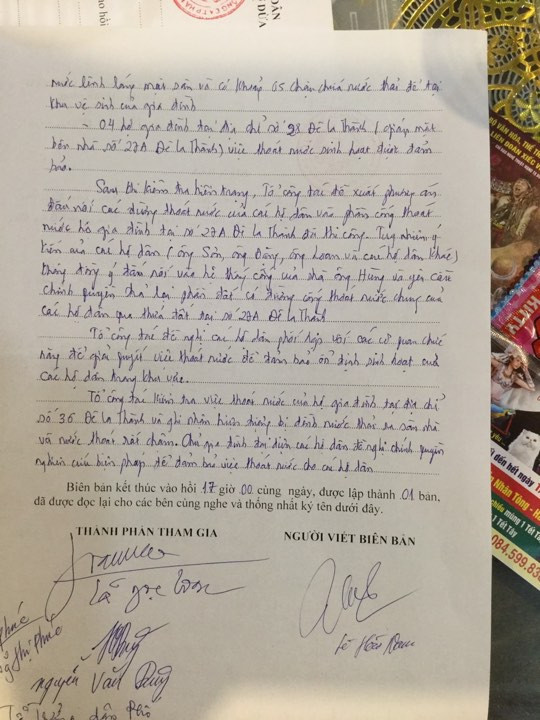 nước lênh láng mặt sân và có khoảng 05 chậu chứa nước thải để tại
khu vệ sinh của gia đình
- 04 hộ gia đình tại địa chỉ số 28 Đê La Thành (giáp mặt
bên nhà số 27A Đê La Thành) việc thoát nước sinh hoạt được đảm
bảo.
Sau khi kiểm tra hiện trạng, Tổ công tác đề xuất phương án
đấu nối các đường thoát nước của các hộ dân vào phần cống thoát
nước hộ gia đình tại số 27A Đê La Thành đã thi công. Tuy nhiên ý
kiến của các hộ dân (ông Sơn, ông Dũng, ông Loan và các hộ dân khác)
không đồng ý đấu nối vào hệ thống cống của nhà ông Hùng và yêu cầu
chính quyền trả lại phần đất có đường cống thoát nước chung của
các hộ dân qua thửa đất tại số 27A Đê La Thành
Tổ công tác đề nghị các hộ dân phối hợp với các cơ quan chức
năng để giải quyết việc thoát nước để đảm bảo ổn định sinh hoạt của
các hộ dân trong khu vực.
Tổ công tác kiểm tra việc thoát nước của hộ gia đình tại địa chỉ
số 36 Đê La Thành và ghi nhận hiện tượng bị đánh nước thải ra sân nhà
và nước thoát rất chậm. Chủ gia đình đại diện các hộ dân đề nghị chính quyền
nghiên cứu biện pháp để đảm bảo việc thoát nước cho các hộ dân
Biên bản kết thúc vào hồi 17 giờ 00 cùng ngày, được lập thành 01 bản,
đã được đọc lại cho các bên cùng nghe và thống nhất ký tên dưới đây.
THÀNH PHẦN THAM GIA NGƯỜI VIẾT BIÊN BẢN
Nguyễn Văn Dũng
Tổ trưởng dân phố
084.599.83